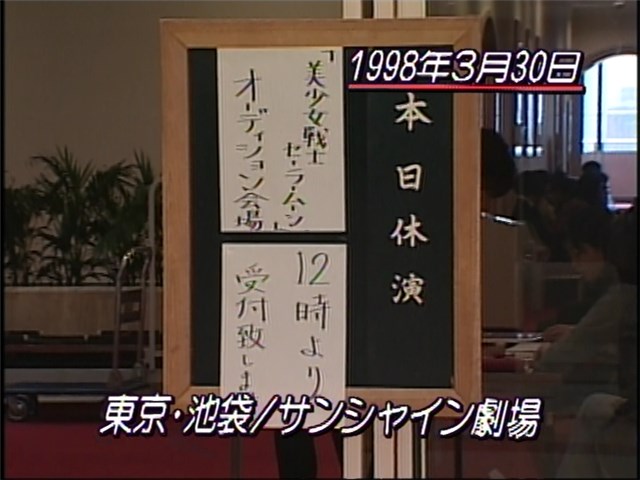 1998年3月30日
本日休演
「美少女戦士
セーラームーン」
オーディション会場
12時より
受付致しま
東京・池袋/サンシャイン劇場